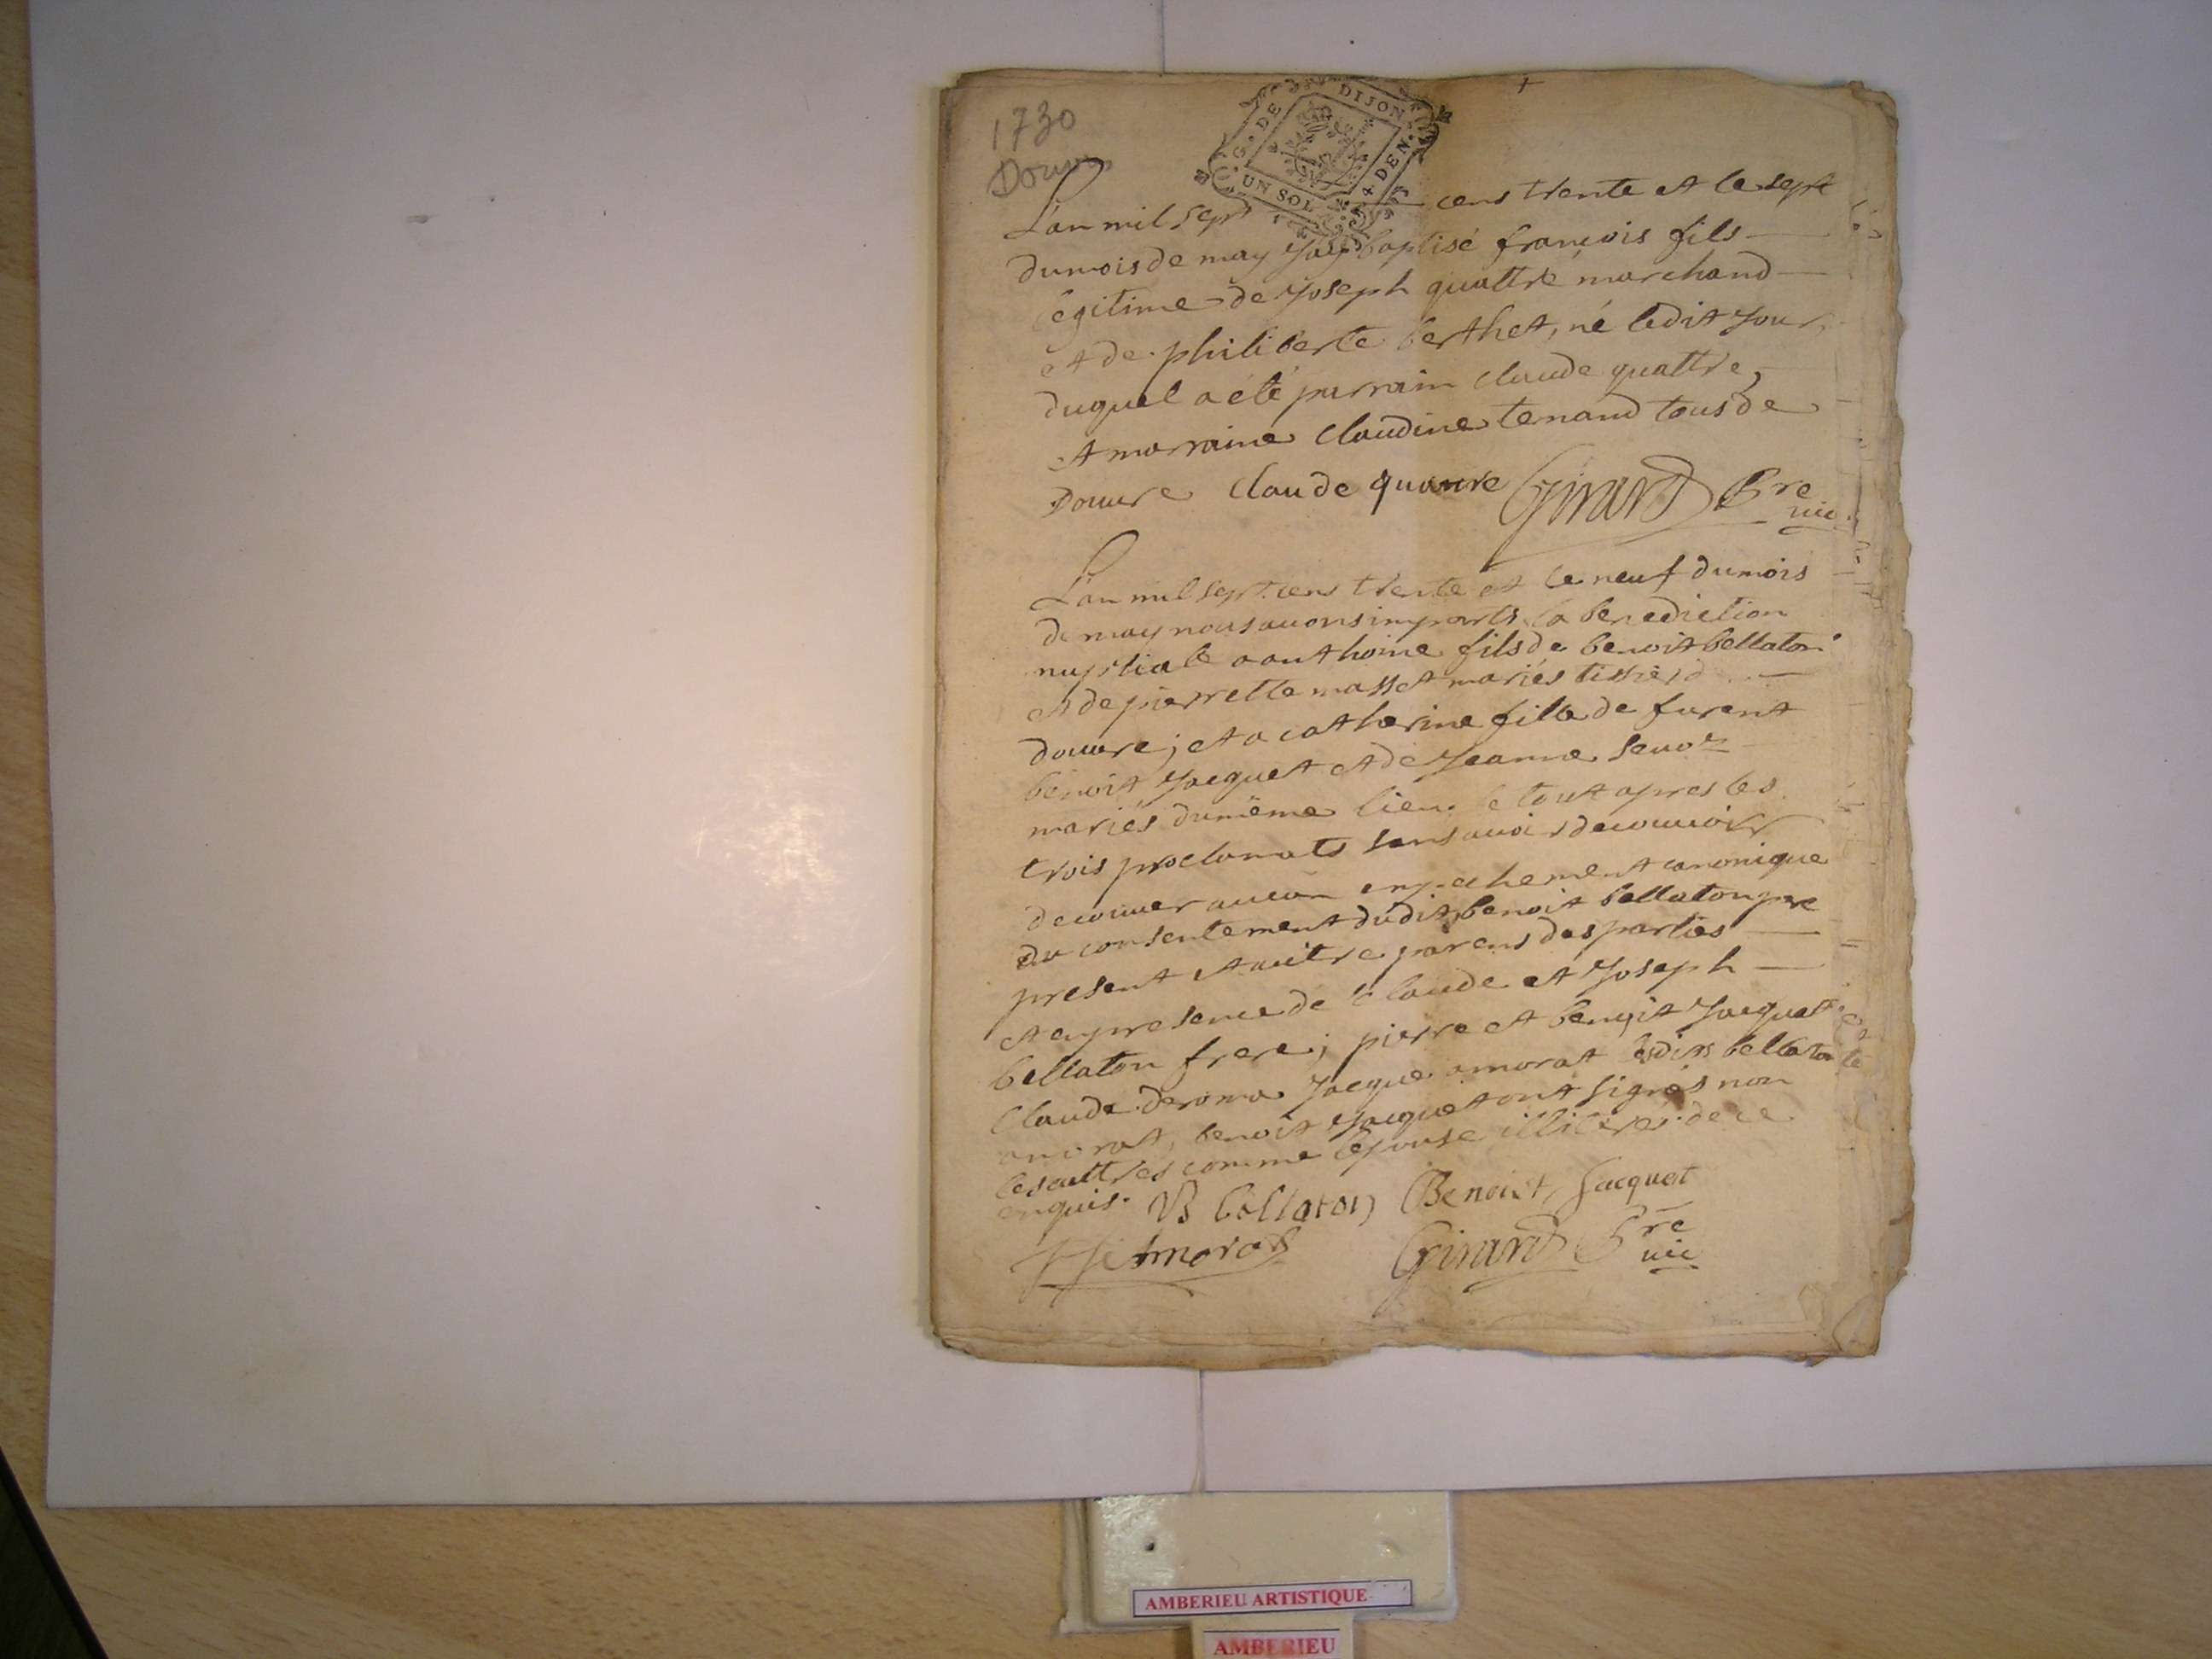 1730
Douvres
G. DE DIJON
UN SOL 4 DEN.
L'an mil sept cens trente et le sept
du mois de may j'ay baptisé françois fils
légitime de joseph quattre marchand
et de philiberte berthet, né ledit jour,
duquel a été parrain claude quattre,
et marraine claudine tenand tous de
Douvre claude quatre Girard Bre
vic.
L'an mil sept cens trente et le neuf du mois
de may nous avons imparti la benediction
nuptiale a anthoine fils de benoit bellaton
et de pierrette masset mariés tissier
douvre; et a catherine fille de furent
benoit jacquet et de jeanne
mariés du même lieu le tout apres les
trois proclamats sans avoir
decouver aucun empechement canonique
du consentement dudit benoit bellaton pre
present et autre parens des parties
et en presence de claude et joseph
bellaton frere; pierre et benoit jacquet
claude deroma jacque amorat lesdits bellaton
amorat, benoit jacquet ont signés non
les autres comme l'epouse illiterés de ce
enquis. B bellaton Benoist jacquet
amorat Girard Bre
vic
AMBERIEU ARTISTIQUE
AMBERIEU